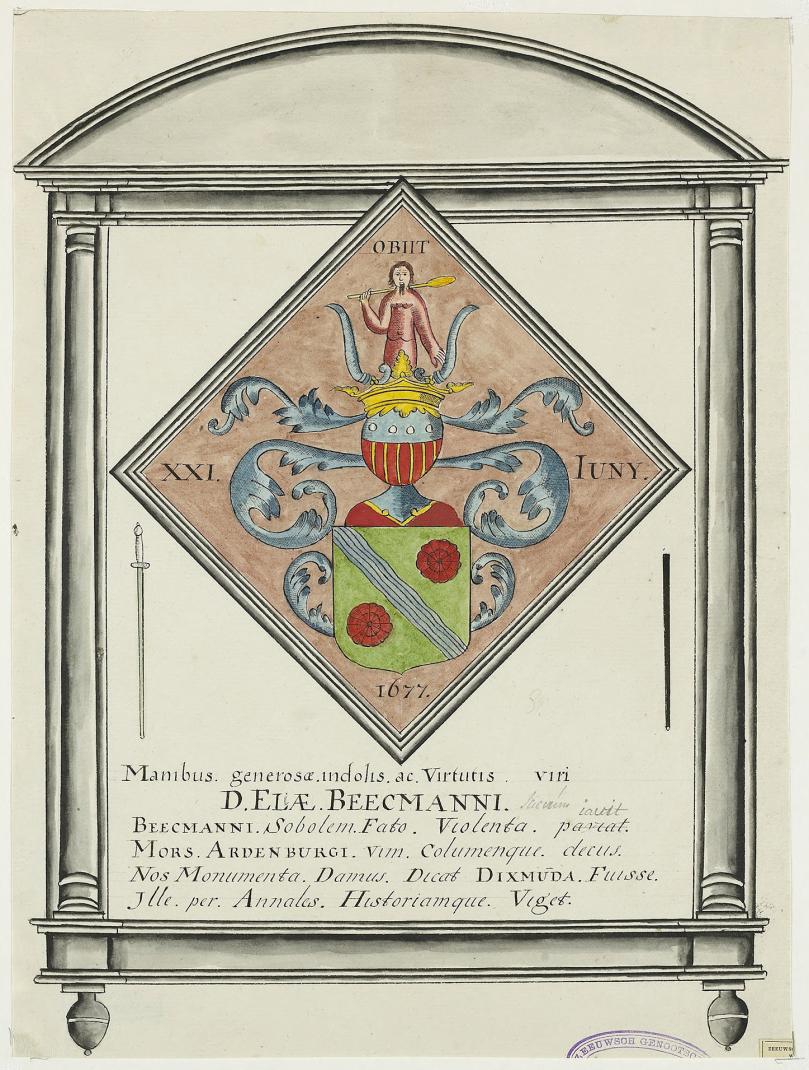 OBIIT
XXI. IUNY.
1677.
Manibus. generosæ.indolis. ac. Virtutis. viri
D. ELIÆ. BEECMANNI.
iacuit
BEECMANNI. Sobolem. Fato. Violenta. partat.
MORS. ARDENBURGI. vim. Columenque. decus.
Nos Monumenta. Damus. Dicat DIXMŪDA. Fuisse.
Jlle. per. Annales. Historiamque. Viget.
ZEEUWSCH GENOOTSC
ZEEUWS